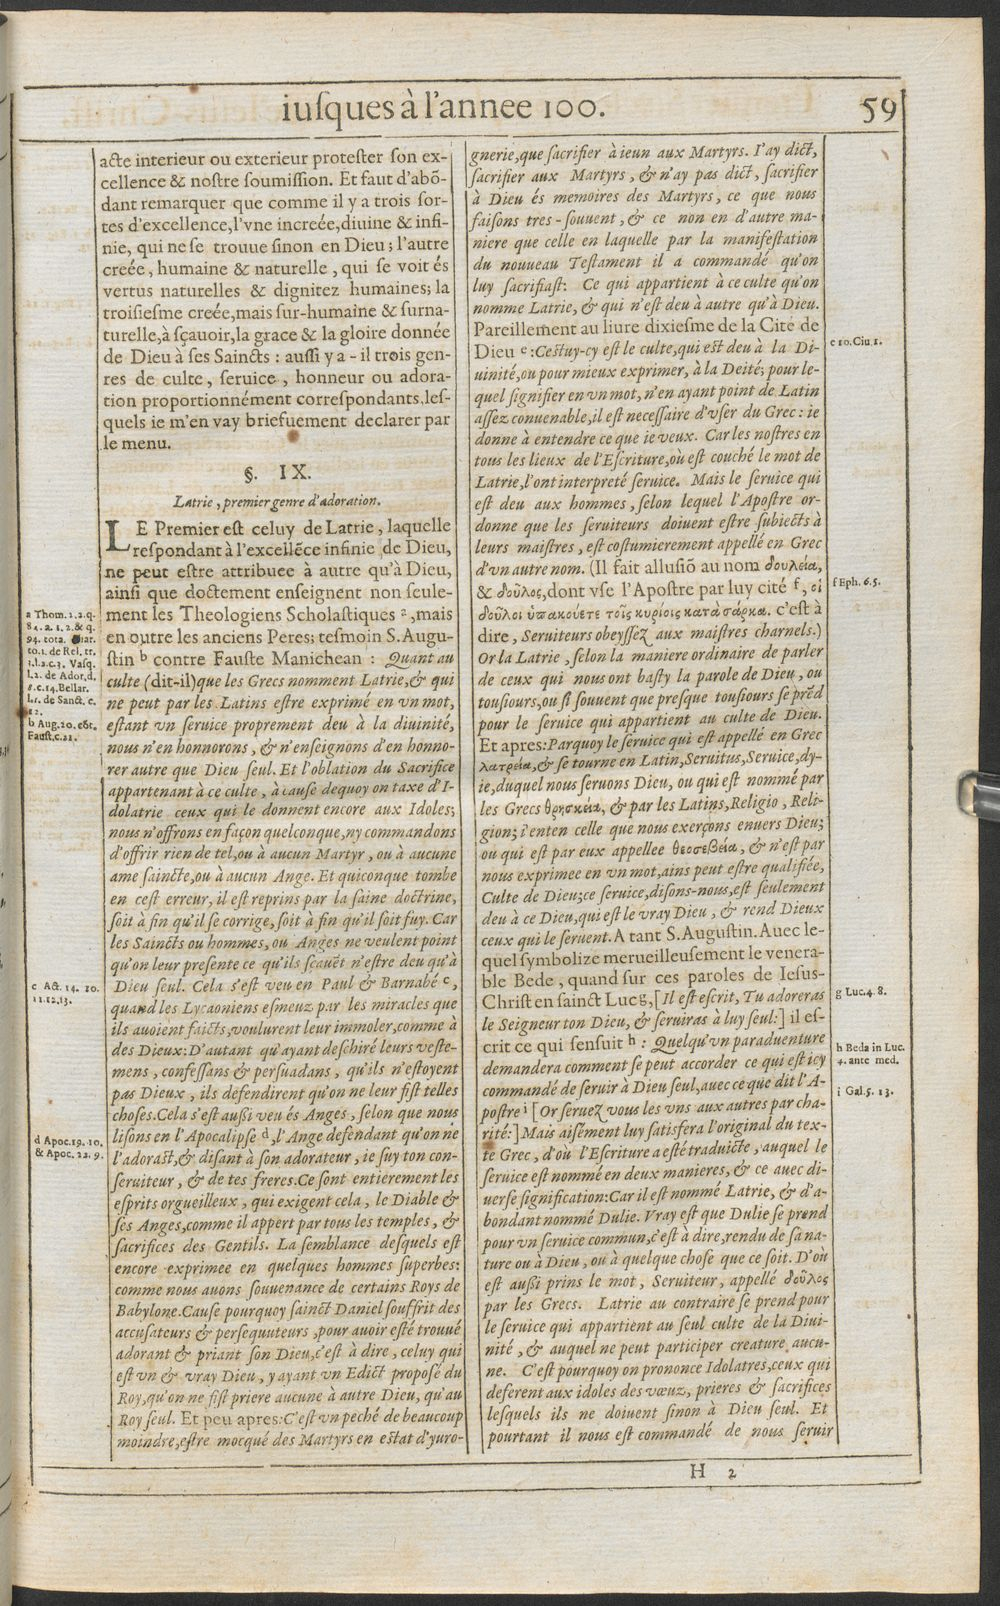 iuſques à l'annee 100.
59
acte interieur ou exterieur proteſter ſon ex-
cellence & noſtre ſoumiſſion. Et faut d'abõ-
dant remarquer que comme il y a trois ſor-
tes d'excellence, l'vne increée, diuine & infi-
nie, qui ne ſe trouue ſinon en Dieu; l'autre
creée, humaine & naturelle, qui ſe voit és
vertus naturelles & dignitez humaines; la
troiſieſme creée, mais ſur-humaine & ſurna-
turelle, à ſçauoir, la grace & la gloire donnée
de Dieu à ſes Saincts : auſſi y a-il trois gen-
res de culte, ſeruice, honneur ou adora-
tion proportionnément correſpondants, leſ-
quels ie m'en vay briefuement declarer par
le menu.
§. IX.
Latrie, premier genre d'adoration.
LE Premier eſt celuy de Latrie, laquelle
reſpondant à l'excellẽce infinie de Dieu,
ne peut eſtre attribuee à autre qu'à Dieu,
ainſi que doctement enſeignent non ſeule-
ment les Theologiens Scholaſtiques a, mais
en outre les anciens Peres; teſmoin S. Augu-
ſtin b contre Fauſte Manichean : Quant au
culte (dit-il) que les Grecs nomment Latrie, & qui
ne peut par les Latins eſtre exprimé en vn mot,
eſtant vn ſeruice proprement deu à la diuinité,
nous n'en honnorons, & n'enſeignons d'en honno-
rer autre que Dieu ſeul. Et l'oblation du Sacrifice
appartenant à ce culte, à cauſe dequoy on taxe d'I-
dolatrie ceux qui le donnent encore aux Idoles;
nous n'offrons en façon quelconque, ny commandons
d'offrir rien de tel, ou à aucun Martyr, ou à aucune
ame ſaincte, ou à aucun Ange. Et quiconque tombe
en ceſt erreur, il eſt reprins par la ſaine doctrine,
ſoit à fin qu'il ſe corrige, ſoit à fin qu'il ſoit fuy. Car
les Saincts ou hommes, ou Anges ne veulent point
qu'on leur preſente ce qu'ils ſçauẽt n'eſtre deu qu'à
Dieu ſeul. Cela s'eſt veu en Paul & Barnabé c,
quand les Lycaoniens eſmeuz par les miracles que
ils auoient faicts, voulurent leur immoler, comme à
des Dieux: D'autant qu'ayant deſchiré leurs veſte-
mens, confeſſans & perſuadans, qu'ils n'eſtoyent
pas Dieux, ils defendirent qu'on ne leur fiſt telles
choſes. Cela s'eſt auſſi veu és Anges, ſelon que nous
liſons en l'Apocalipſe d, l'Ange defendant qu'on ne
l'adoraſt, & diſant à ſon adorateur, ie ſuy ton con-
ſeruiteur, & de tes freres. Ce ſont entierement les
eſprits orgueilleux, qui exigent cela, le Diable &
ſes Anges, comme il appert par tous les temples, &
ſacrifices des Gentils. La ſemblance deſquels eſt
encore exprimee en quelques hommes ſuperbes:
comme nous auons ſouuenance de certains Roys de
Babylone. Cauſe pourquoy ſainct Daniel ſouffrit des
accuſateurs & perſequuteurs, pour auoir eſté trouué
adorant & priant ſon Dieu, c'eſt à dire, celuy qui
eſt vn & vray Dieu, y ayant vn Edict propoſé du
Roy, qu'on ne fiſt priere aucune à autre Dieu, qu'au
Roy ſeul. Et peu apres: C'eſt vn peché de beaucoup
moindre, eſtre mocqué des Martyrs en eſtat d'yuro-
a Thom. 2.2.q.
84. a. 1. 2. & q.
94. tota.
to. 1. de Rel. tr.
3. l. 2. c. 3. Vaſq.
l. 2. de Ador, d.
8. c. 14. Bellar.
l. 1. de Sanct. c.
12.
b Aug. 20. cõt.
Fauſt, c. 21.
c Act. 14. 10.
11. 12. 13.
d Apoc. 19. 10.
& Apoc. 22. 9.
gnerie, que ſacrifier à ieun aux Martyrs. I'ay dict,
ſacrifier aux Martyrs, & n'ay pas dict, ſacrifier
à Dieu és memoires des Martyrs, ce que nous
faiſons tres-ſouuent, & ce non en d'autre ma-
niere que celle en laquelle par la manifeſtation
du nouueau Teſtament il a commandé qu'on
luy ſacrifiaſt: Ce qui appartient à ce culte qu'on
nomme Latrie, & qui n'eſt deu à autre qu'à Dieu.
Pareillement au liure dixieſme de la Cité de
Dieu e : Ceſtuy-cy eſt le culte, qui eſt deu à la Di-
uinité, ou pour mieux exprimer, à la Deité; pour le-
quel ſignifier en vn mot, n'en ayant point de Latin
aſſez conuenable, il eſt neceſſaire d'vſer du Grec : ie
donne à entendre ce que ie veux. Car les noſtres en
tous les lieux de l'Eſcriture, où eſt couché le mot de
Latrie, l'ont interpreté ſeruice. Mais le ſeruice qui
eſt deu aux hommes, ſelon lequel l'Apoſtre or-
donne que les ſeruiteurs doiuent eſtre ſubiects à
leurs maiſtres, eſt coſtumierement appellé en Grec
d'vn autre nom. (Il fait alluſiõ au nom δουλεία,
& δοῦλος, dont vſe l'Apoſtre par luy cité f, οἱ
δοῦλοι ὑπακούετε τοῖς κυρίοις κατὰ σάρκα. c'eſt à
dire, Seruiteurs obeyſſez aux maiſtres charnels.)
Or la Latrie, ſelon la maniere ordinaire de parler
de ceux qui nous ont baſty la parole de Dieu, ou
touſiours, ou ſi ſouuent que preſque touſiours ſe prẽd
pour le ſeruice qui appartient au culte de Dieu.
Et apres: Parquoy le ſeruice qui eſt appellé en Grec
λατρεία, & ſe tourne en Latin, Seruitus, Seruice, dy-
ie, duquel nous ſeruons Dieu, ou qui eſt nommé par
les Grecs θρησκεία, & par les Latins, Religio, Reli-
gion; i'enten celle que nous exerçons enuers Dieu;
ou qui eſt par eux appellee θεοσεβεία, & n'eſt par
nous exprimee en vn mot, ains peut eſtre qualifiée,
Culte de Dieu; ce ſeruice, diſons-nous, eſt ſeulement
deu à ce Dieu, qui eſt le vray Dieu, & rend Dieux
ceux qui le ſeruent. A tant S. Auguſtin. Auec le-
quel ſymbolize merueilleuſement le venera-
ble Bede, quand ſur ces paroles de Ieſus-
Chriſt en ſainct Luc g, [Il eſt eſcrit, Tu adoreras
le Seigneur ton Dieu, & ſeruiras à luy ſeul:] il eſ-
crit ce qui ſenſuit h : Quelqu'vn paraduenture
demandera comment ſe peut accorder ce qui eſt icy
commandé de ſeruir à Dieu ſeul, auec ce que dit l'A-
poſtre i [Or ſeruez vous les vns aux autres par cha-
rité:] Mais aiſément luy ſatisfera l'original du tex-
te Grec, d'où l'Eſcriture a eſté traduicte, auquel le
ſeruice eſt nommé en deux manieres, & ce auec di-
uerſe ſignification: Car il eſt nommé Latrie, & d'a-
bondant nommé Dulie. Vray eſt que Dulie ſe prend
pour vn ſeruice commun, c'eſt à dire, rendu de ſa na-
ture ou à Dieu, ou à quelque choſe que ce ſoit. D'où
eſt auſſi prins le mot, Seruiteur, appellé δοῦλος
par les Grecs. Latrie au contraire ſe prend pour
le ſeruice qui appartient au ſeul culte de la Diui-
nité, & auquel ne peut participer creature aucu-
ne. C'eſt pourquoy on prononce Idolatres, ceux qui
deferent aux idoles des vœuz, prieres & ſacrifices
leſquels ils ne doiuent ſinon à Dieu ſeul. Et
pourtant il nous eſt commandé de nous ſeruir
e 10. Ciu. 1.
f Eph. 6. 5.
g Luc. 4. 8.
h Beda in Luc.
4. ante med.
i Gal. 5. 13.
H 2